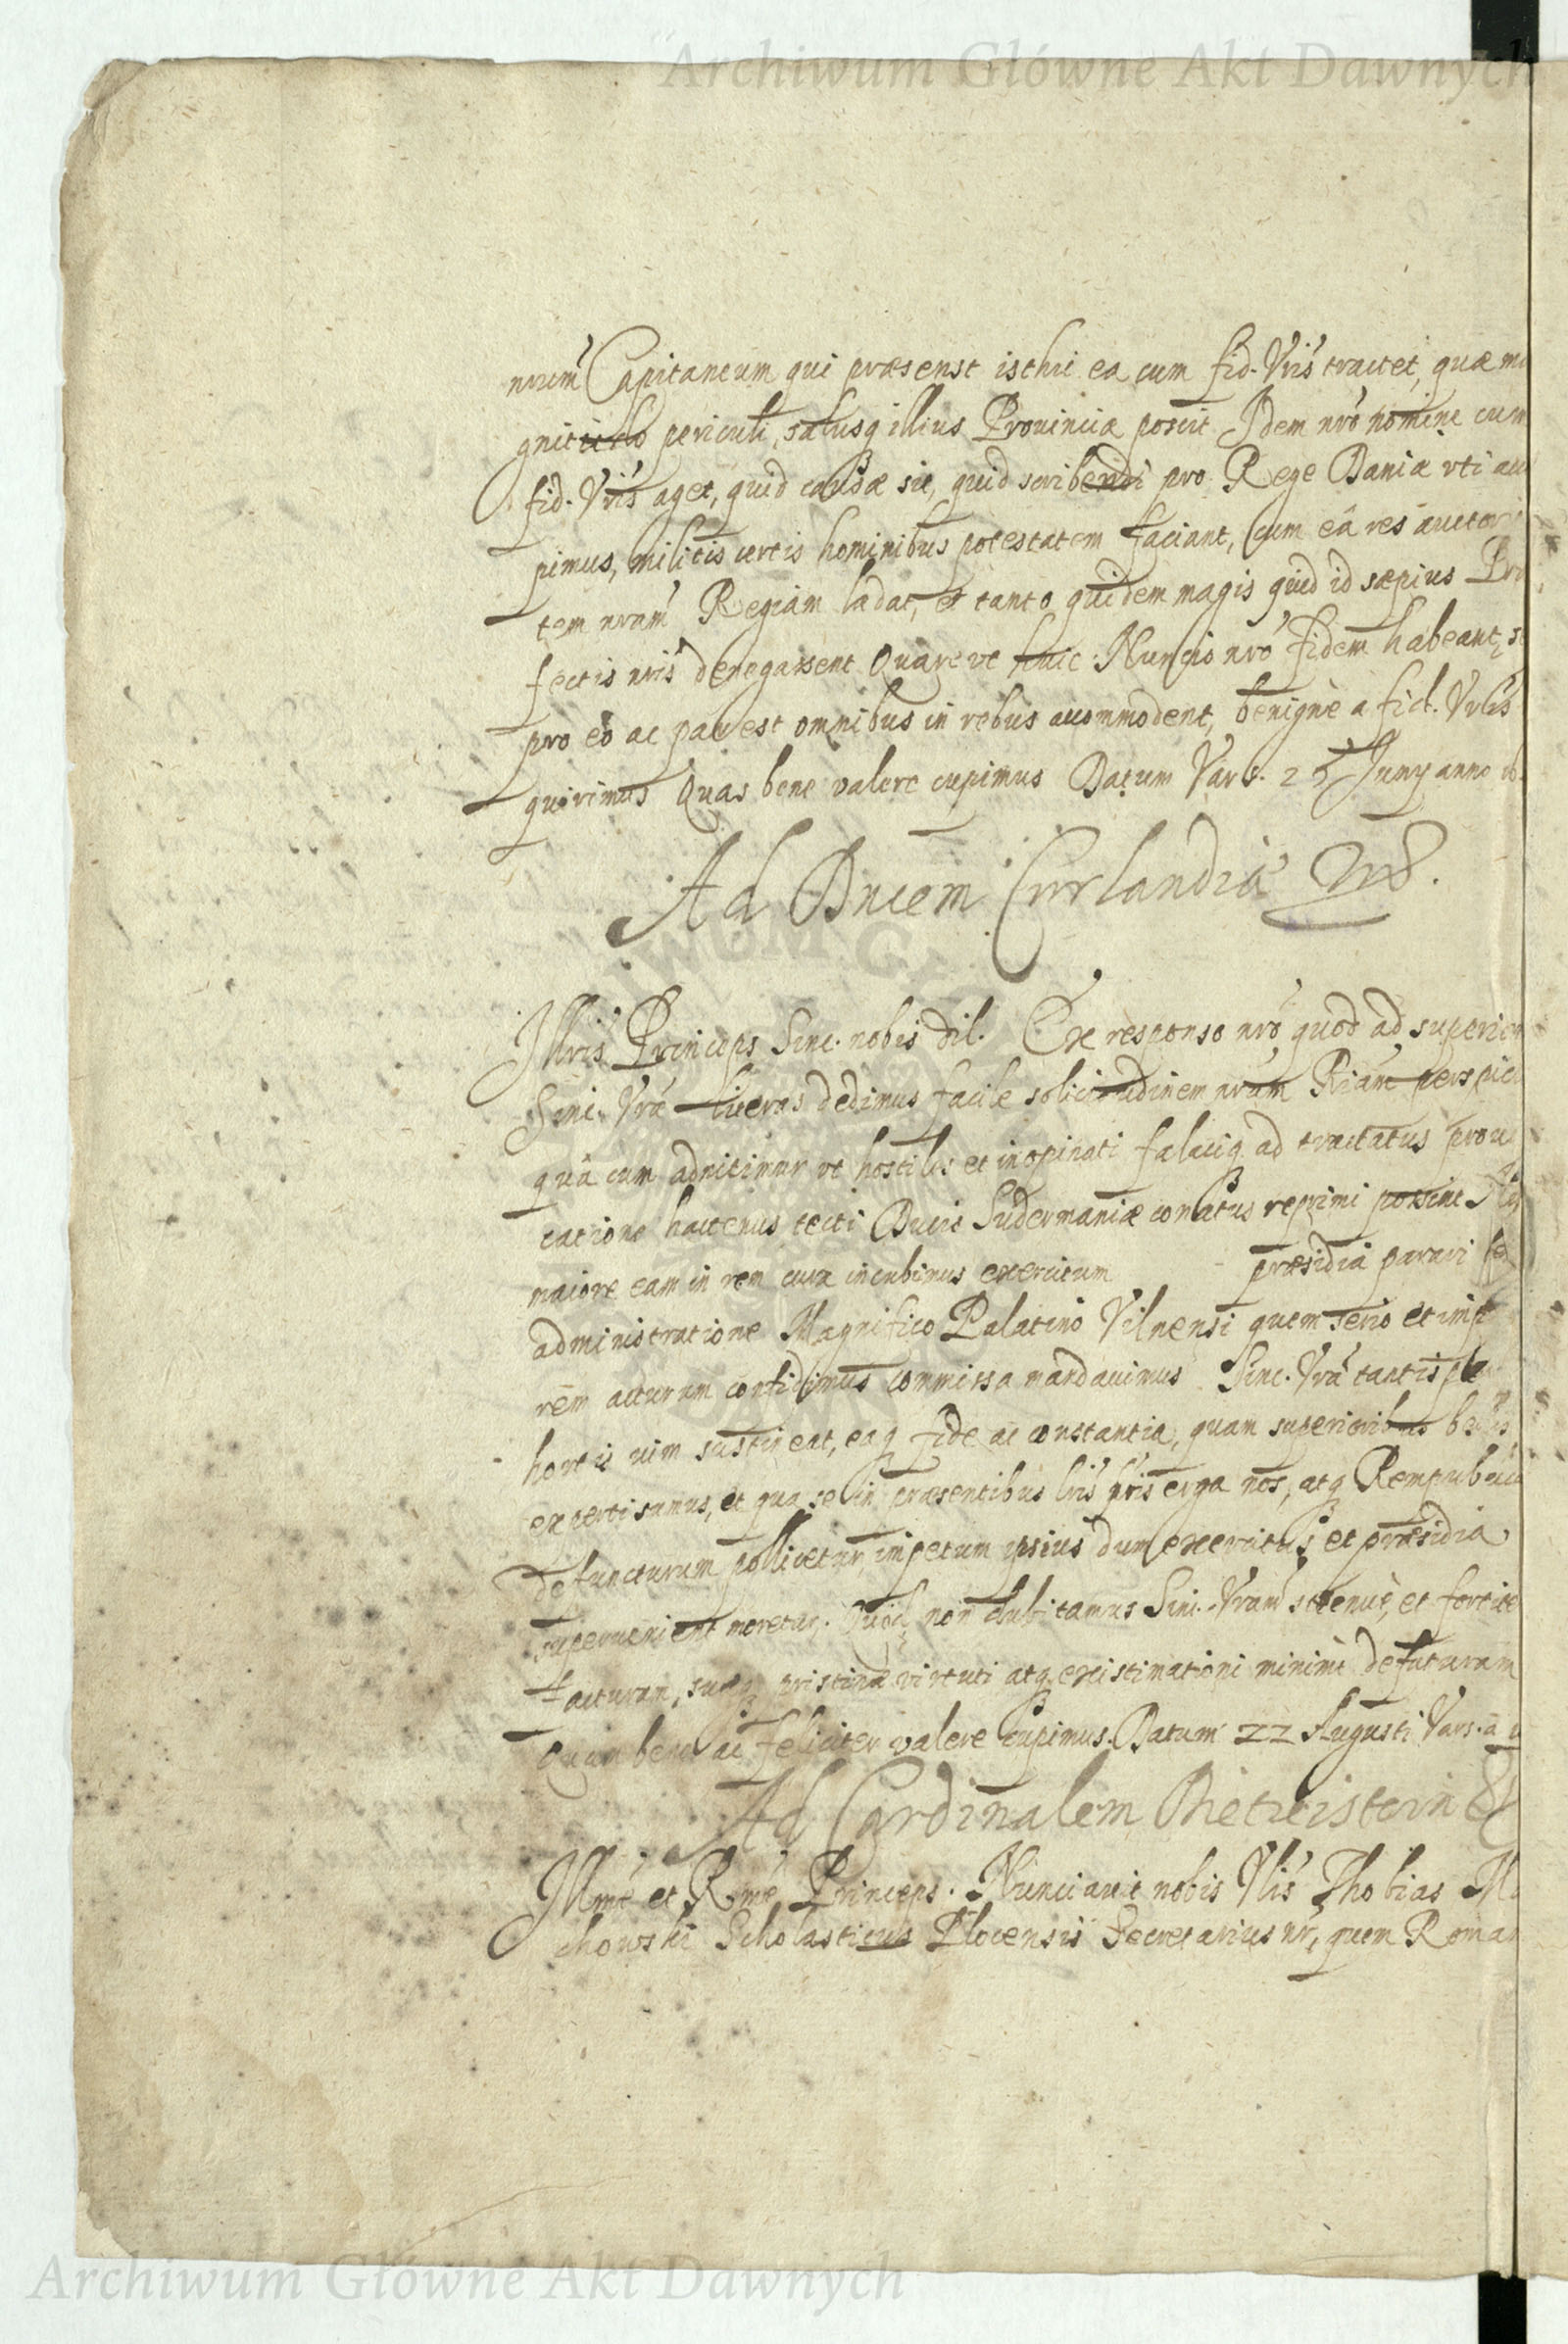 Archiwum Główne Akt Dawnych
nrum Capitaneum qui præsenst isthic ea cum fid. Vris tractet, quæ ma
gnitudo periculi, salusq illius Prouinciæ poscit. Idem nro nomine cum
fid. Vris aget, quid causæ sit, quid scribendi pro Rege Daniæ vti acce
pimus, militis certis hominibus potestatem faciant, cum eâ res auctori
tem nram Regiam lædat, et tanto quidem magis quid id sæpius Præ
fectis nris denegassent Quare vt huic Nuncio nro fidem habeant, se
pro eo ac par est omnibus in rebus accommodent, benignè a fid. Vris
quirimus Quas bene valere cupimus Datum Vars. 25 Juny anno
Ad Ducem Curlandiæ
Illris Princeps Sinc. nobis dil. Ex responso nro quod ad superiores
Sinc. Vræ literas dedimus facile solicitudinem nram Riam perspicie
quâ cum adnitimur vt hostiles et inopinati falaciq ad tractatus prouo
catione hactenus tecti Ducis Sudermaniæ conatus reprimi possint
maiore eam in rem cura incubimus exercitum præsidia parari
administratione Magnifico Palatino Vilnensi quem serio et imp
rem acturum confidimus commissa mandauimus Sinc. Vra tantisper
hostis vim sustineat, eaq fide ac constantia, quam superioribus bellis
experti sumus, et qua se in præsentibus lris suis erga nos, atq Rempublicam
defuncturum pollicetur, impetum ipsius dum exercitus et præsidia
superuenient moretur. Quod non dubitamus Sinc. Vram strenuè, et fortiter
facturam, suæq pristinæ virtuti atq existimationi minimè defuturam
Quam bene ac feliciter valere cupimus. Datum 22 Augusti Vars. a
Ad Cardinalem Dietristein
Illme et Rme Princeps. Nunciauit nobis Vlis Thobias M
chowski Scholasticus Plocensis Secretarius nr, quem Roman
Archiwum Główne Akt Dawnych